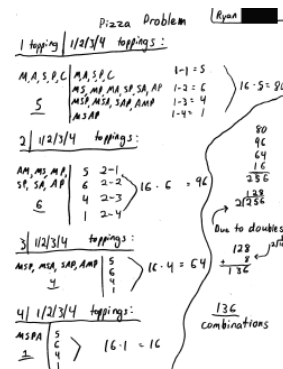 Pizza Problem
Ryan
1 topping | 1/2/3/4 toppings:
M, A, S, P, C | M, A, S, P, C 1-1=5
MS, MP, MA, SP, SA, AP 1-2=6
MSP, MSA, SAP, AMP 1-3=4
MSAP 1-4=1
5
16·5=80
2| 1/2/3/4 toppings:
AM, MS, MP, SP, SA, AP
6
5 2-1
6 2-2
4 2-3
1 2-4
16·6=96
3| 1/2/3/4 toppings:
MSP, MSA, SAP, AMP
4
5
6
4
1
16·4=64
4| 1/2/3/4 toppings:
MSPA
1
5
6
4
1
16·1=16
80
96
64
16
256
128
2/256
Due to doubles
128
+ 8
136
136
combinations